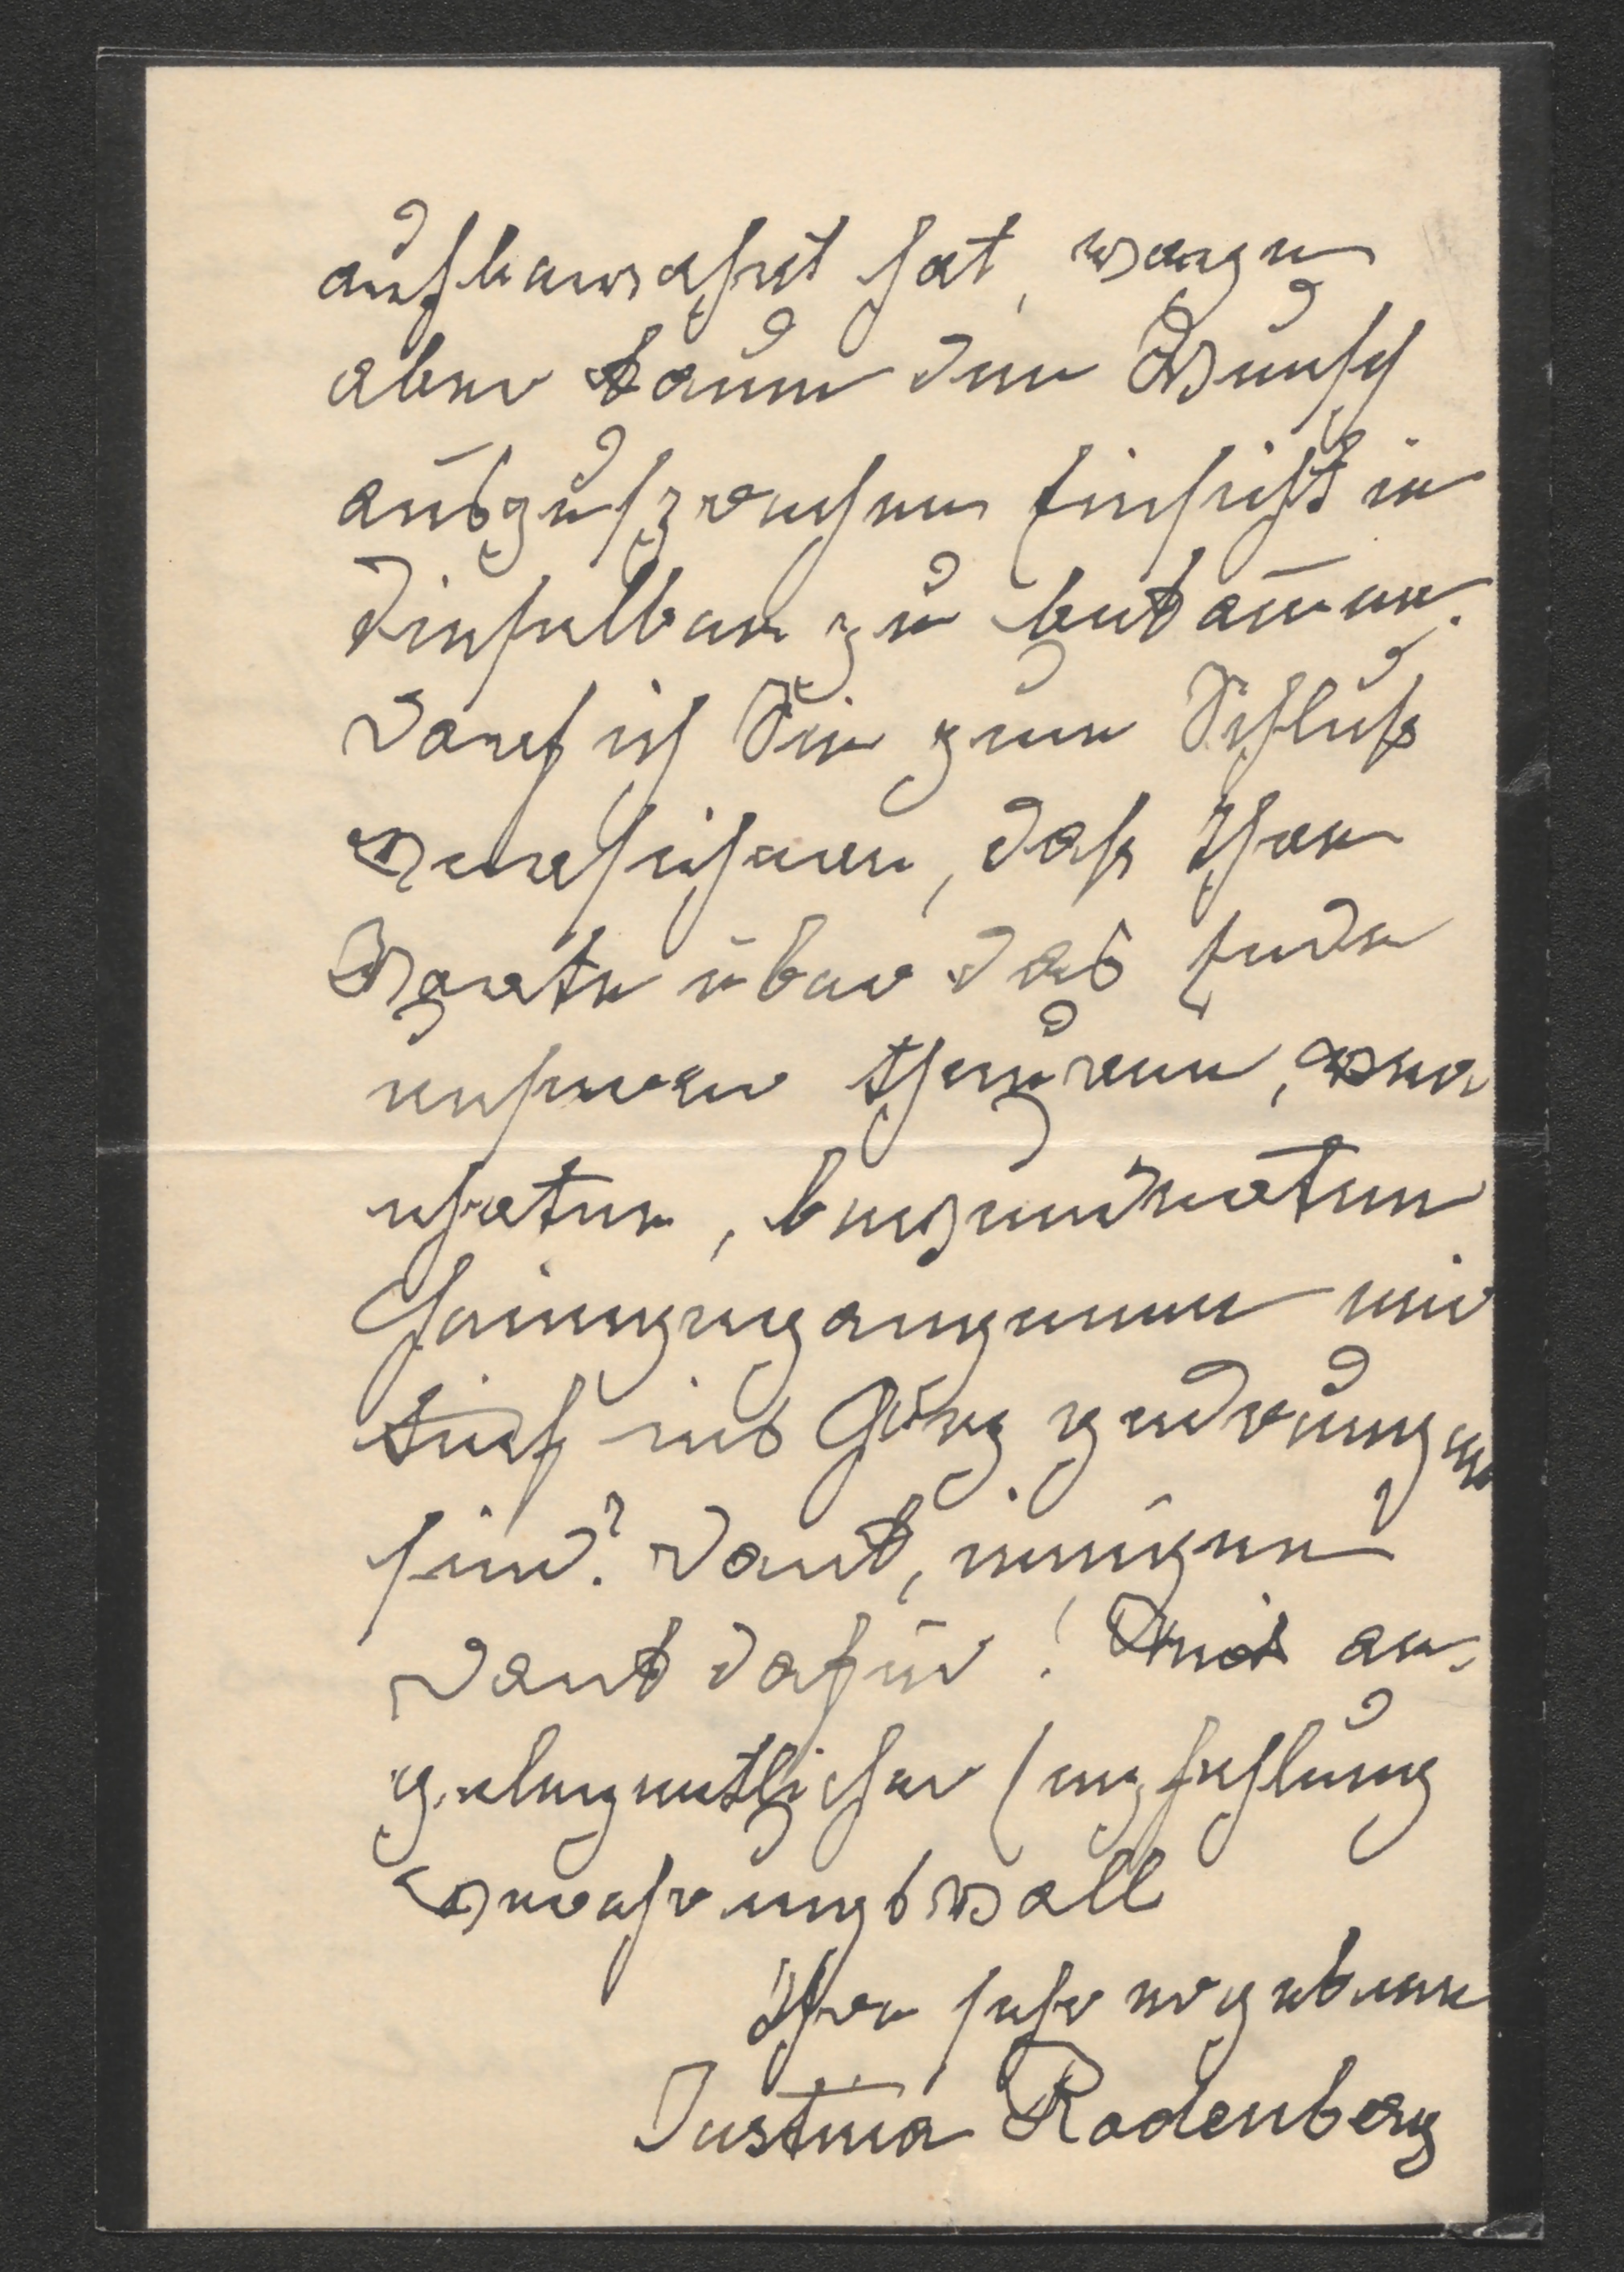 aufbewahrt hat, wage
aber kaum den Wunsch
auszusprechen Einsicht in
dieselben zu bekom̄en.
Darf ich Sie zum Schluß
versichern, daß Ihre
Worte über das Ende
unseres theuren, ver
ehrten, bewunderten
Heimgegangenen mir
tief ins Herz gedrungen
sind? Dank, innigen
Dank dafür! Mit an-
gelegentlicher Empfehlung
verehrungsvoll
Ihre sehr ergebene
Justina Rodenberg